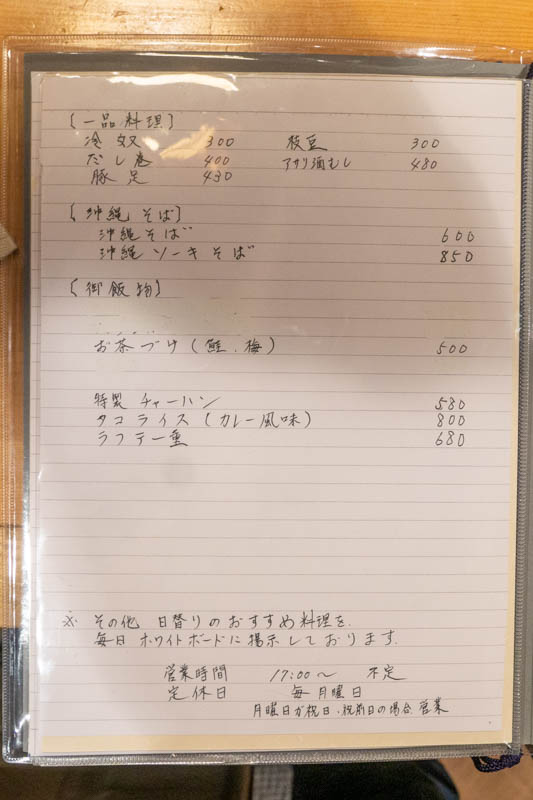 〔一品料理〕
冷奴 300 枝豆 300
だし巻 400 アサリ酒むし 480
豚足 430
〔沖縄そば〕
沖縄そば 600
沖縄ソーキそば 850
〔御飯物〕
お茶づけ(鮭、梅) 500
特製チャーハン 580
タコライス(カレー風味) 800
ラフテー重 680
※ その他 日替りのおすすめ料理を
毎日 ホワイトボードに掲示しております。
営業時間 17:00〜 不定
定休日 毎月曜日
月曜日が祝日、祝前日の場合 営業